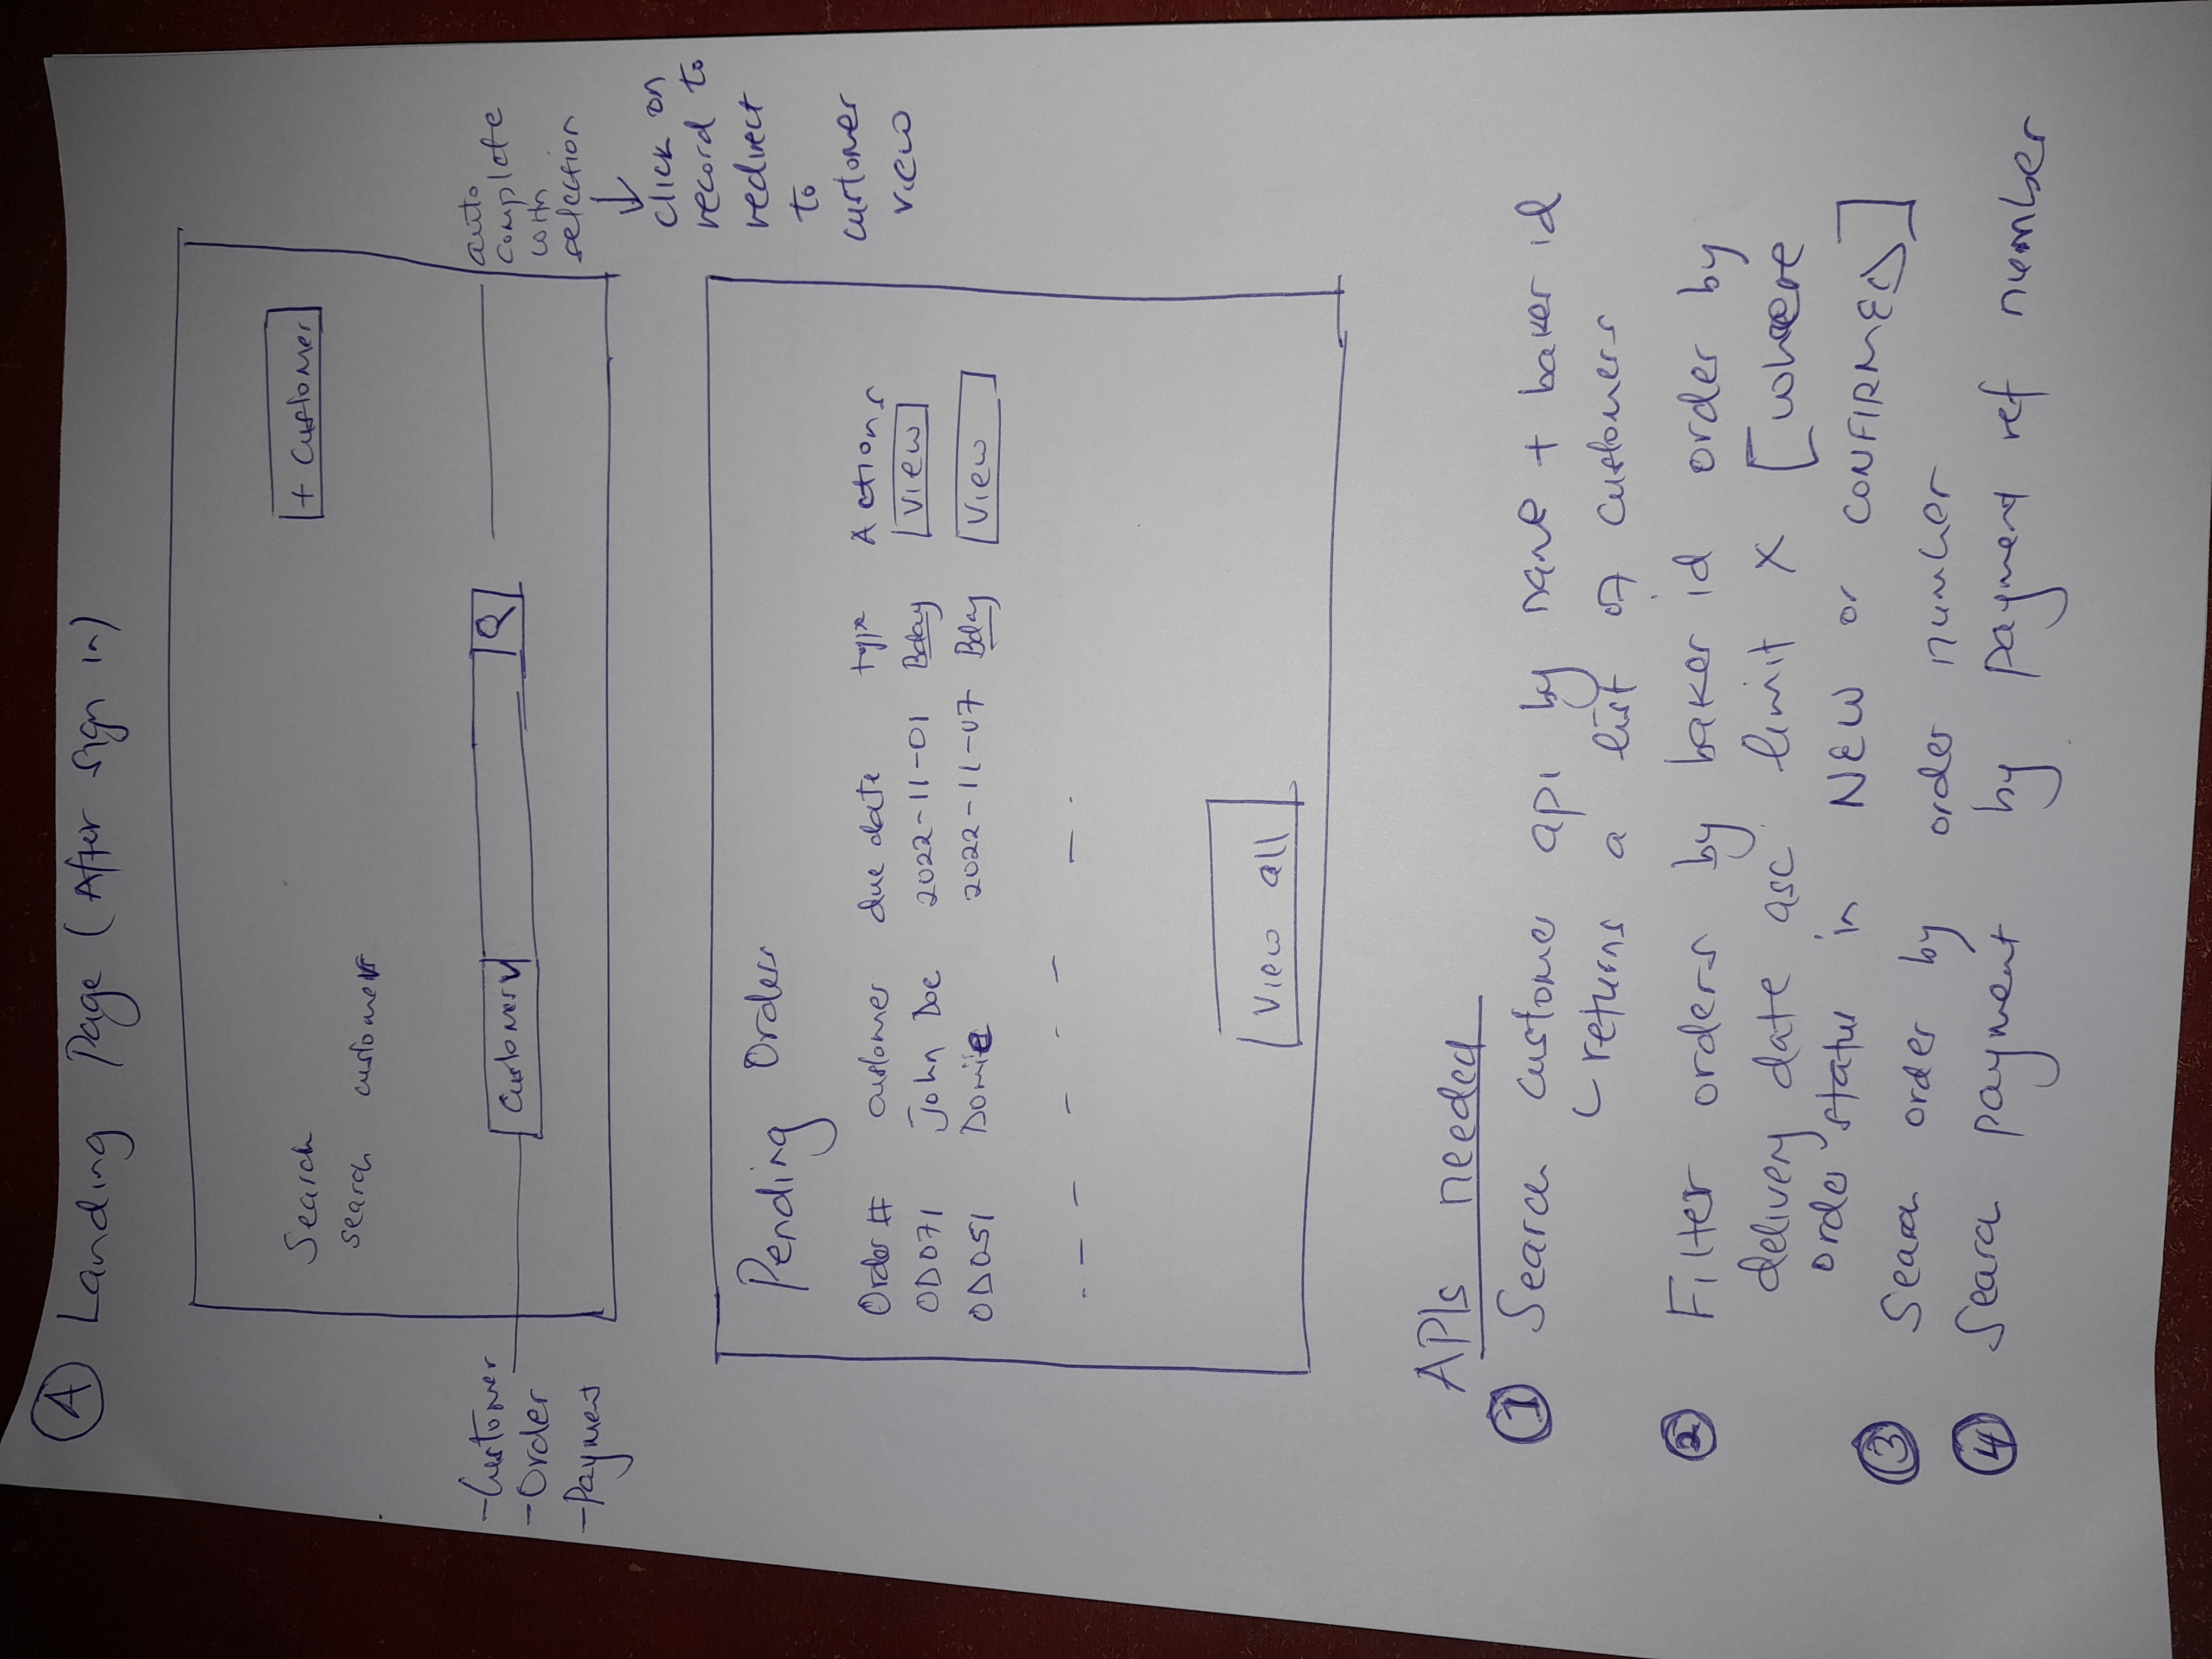 A Landing Page (After sign in)
Search
+ Customer
search customers
- Customer
- Order
- Payment
Customer
auto
complete
with
selection
click on
record to
redirect
to
customer
view
Pending Orders
Order # customer due date type Actions
OD071 John Doe 2022-11-01 Bday View
OD051 2022-11-07 Bday View
View all
APIs needed
1 Search customer api by name + baker id
returns a list of customers
2 Filter orders by baker id order by
delivery date asc limit X [where
order status in NEW or CONFIRMED]
3 Search order by order number
4 Search payment by payment ref number